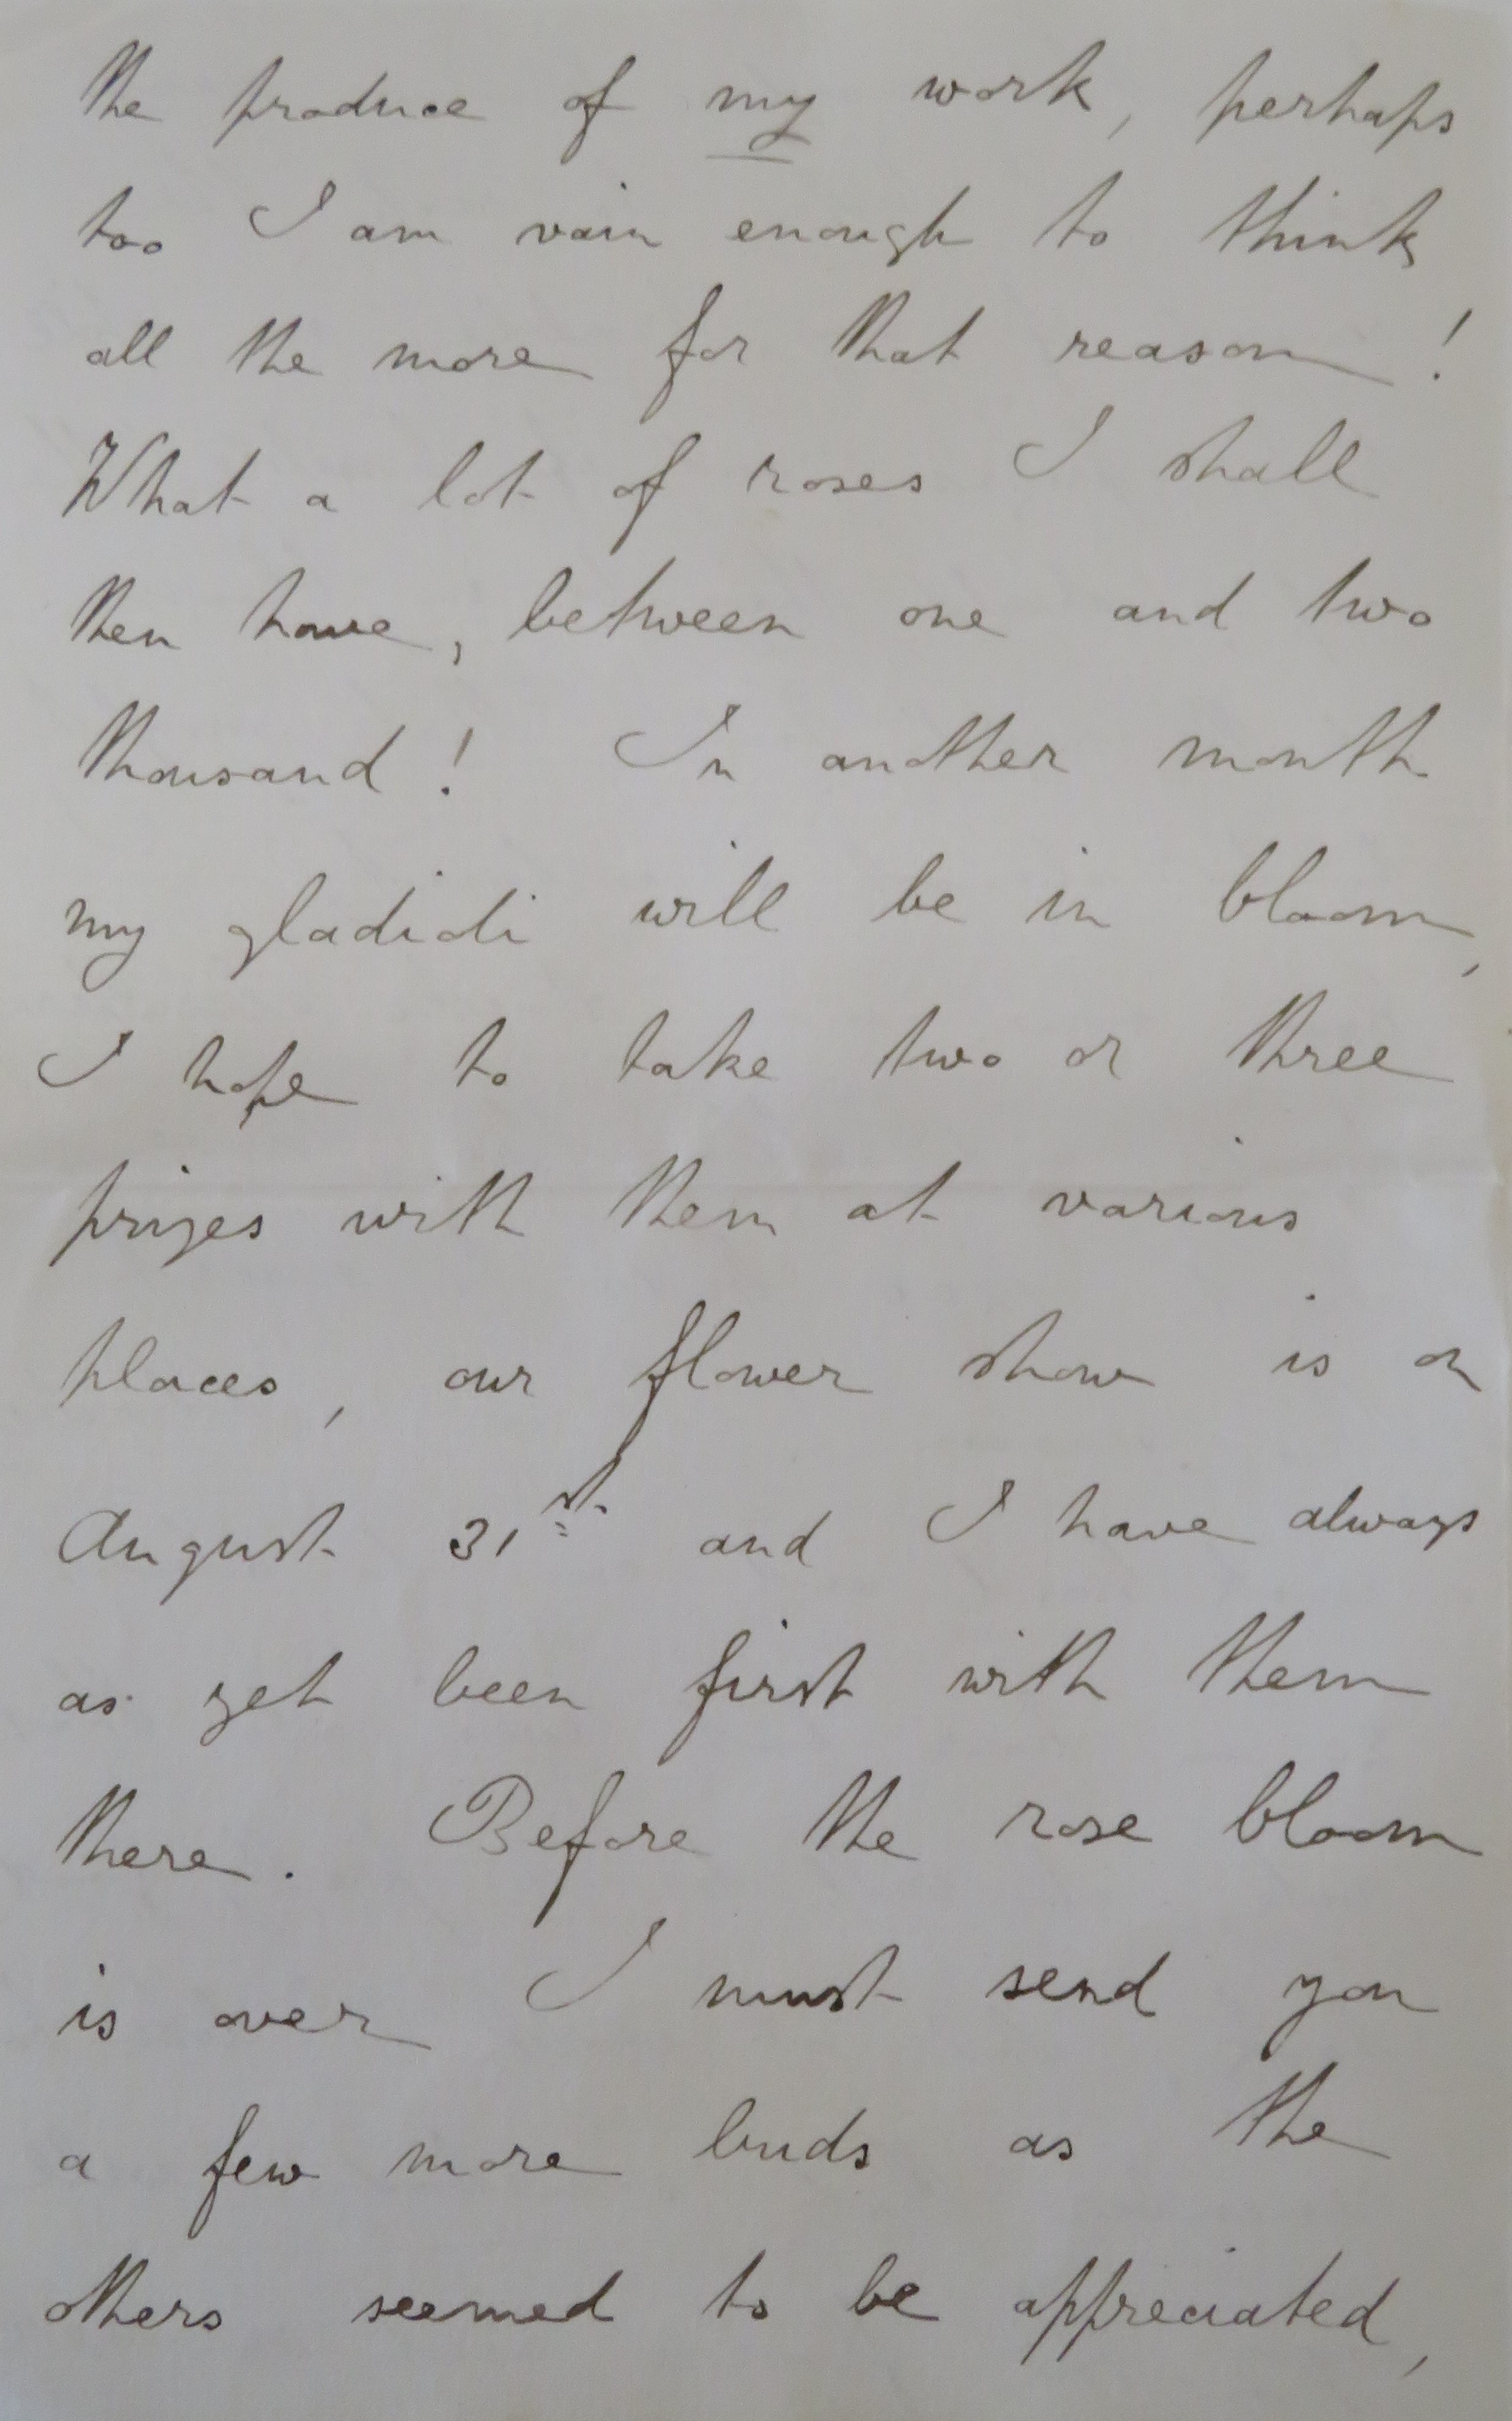 the produce of my work, perhaps
too I am vain enough to think
all the more for that reason!
What a lot of roses I shall
then have, between one and two
thousand! In another month
my gladioli will be in bloom,
I hope to take two or three
prizes with them at various
places, our flower show is on
August 31st and I have always
as yet been first with them
there. Before the rose bloom
is over I must send you
a few more buds as the
others seemed to be appreciated,